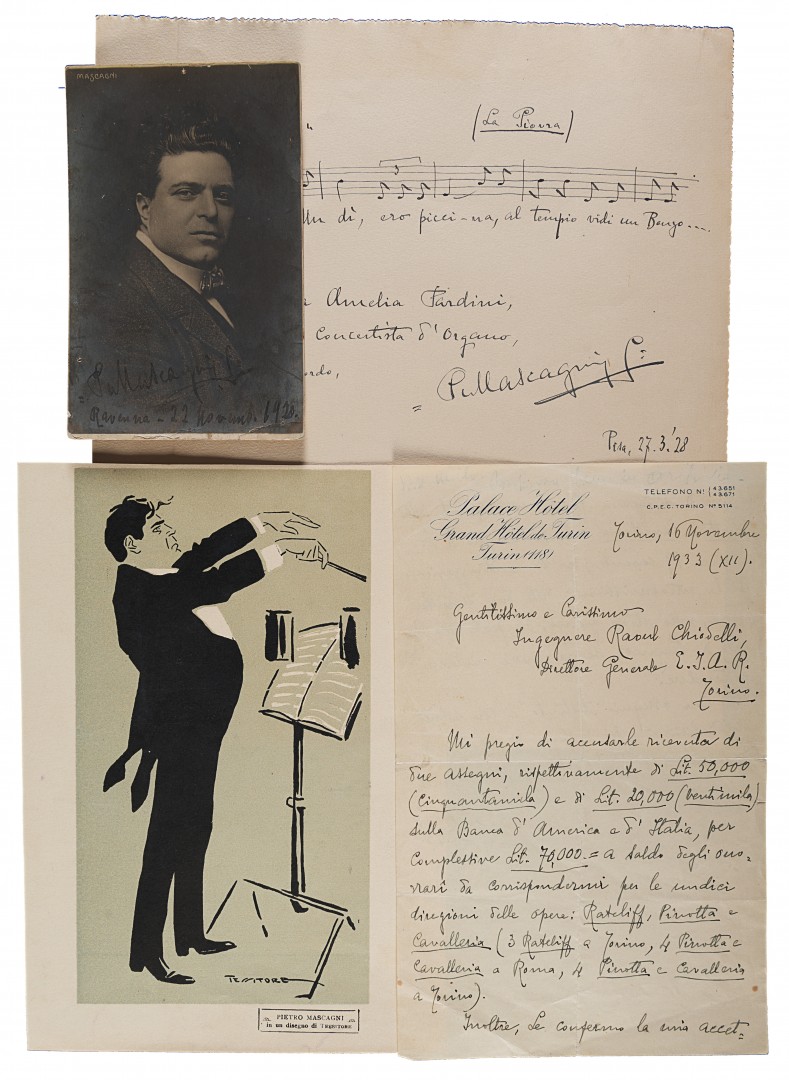 MASCAGNI
(La Piovra)
3
Un dì, ero picci-na, al tempio vidi un Bonzo....
Amelia Pardini,
Concertista d'Organo,
P. Mascagni
Pisa, 27.3.'28
P. Mascagni
Ravenna - 22 novemb. 1920
TESTORE
PIETRO MASCAGNI
in un disegno di TRESTORE
Palace Hôtel
Grand Hôtel de Turin
Turin (118)
TELEFONO Nⁱ 43.651
43.671
C.P.E.C. TORINO Nº 5114
Torino, 16 Novembre
1933 (XII).
Gentilissimo e Carissimo
Ingegnere Raoul Chiodelli,
Direttore Generale E.I.A.R.
Torino.
Mi pregio di accusarle ricevuta di
due assegni, rispettivamente di Lit. 50,000
(cinquantamila) e di Lit. 20,000 (ventimila)
sulla Banca d'America e d'Italia, per
complessive Lit. 70,000.= a saldo degli ono=
rarî da corrispondermi per le undici
direzioni delle opere: Ratcliff, Pinotta e
Cavalleria (3 Ratcliff a Torino, 4 Pinotta e
Cavalleria a Roma, 4 Pinotta e Cavalleria
a Torino).
Inoltre, Le confermo la mia accet=